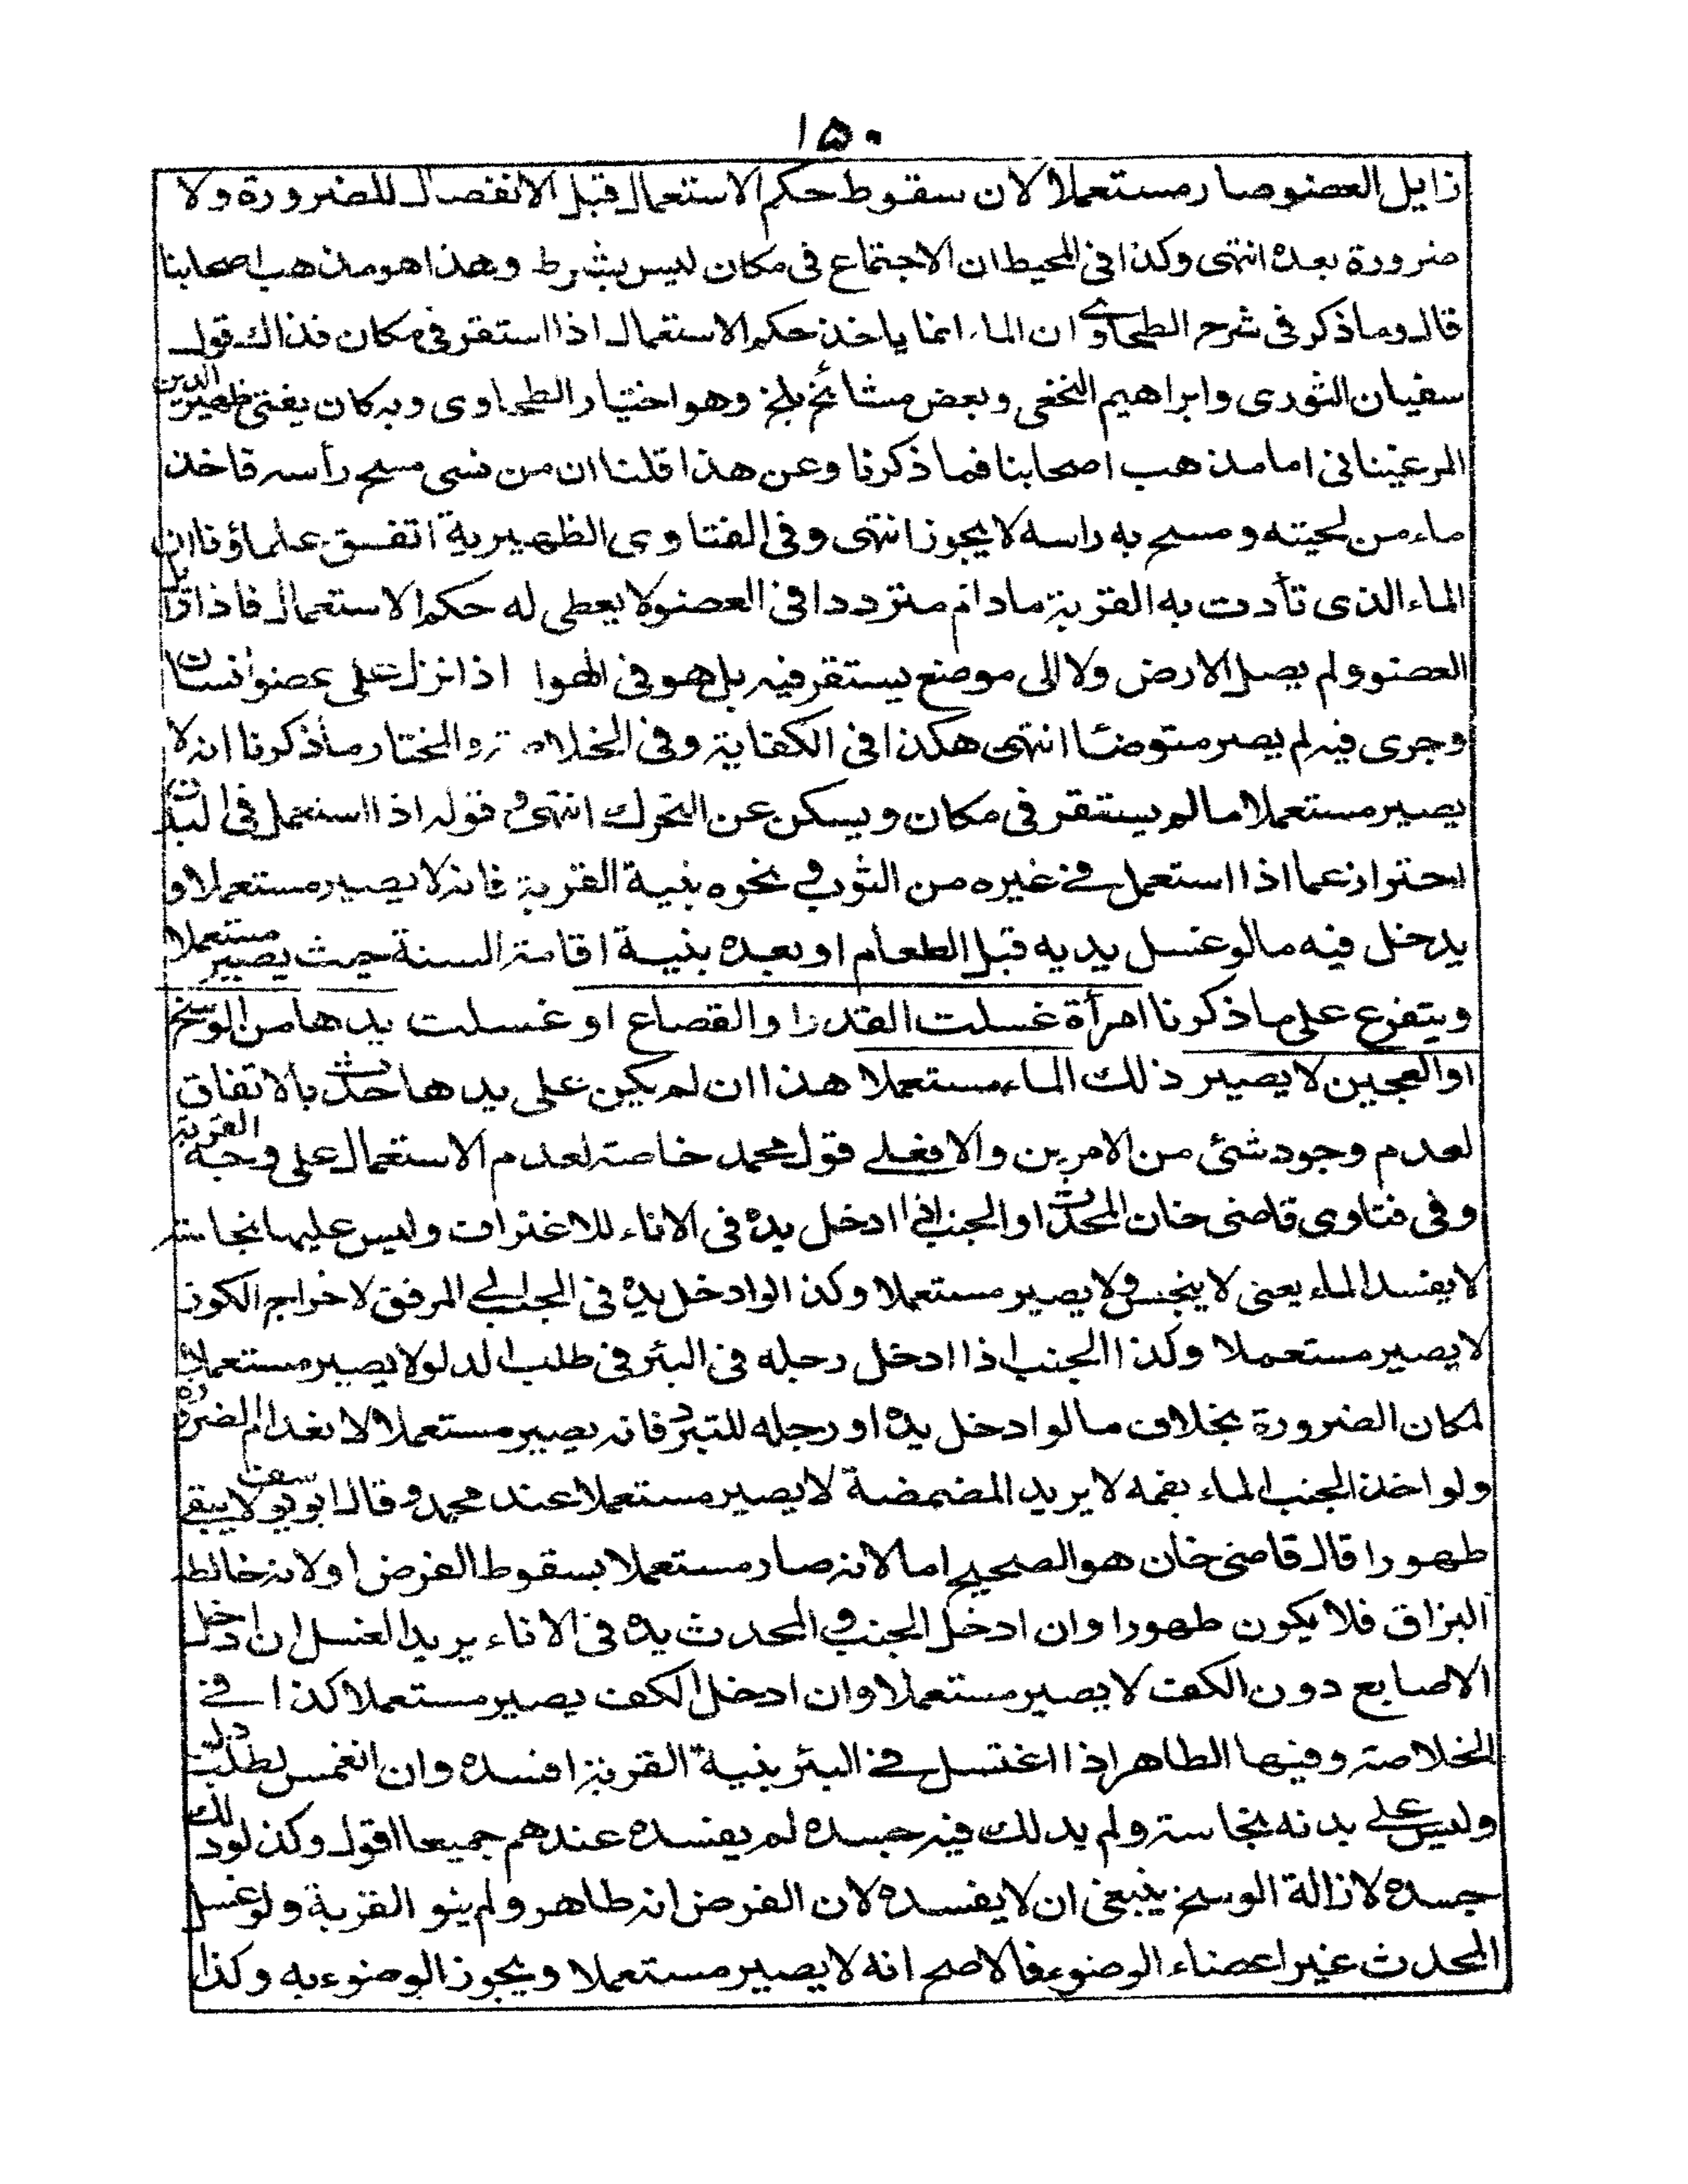 ١٥٠
زايل العضو صار مستعملا لان سقوط حكم الاستعمال قبل الانفصال للضرورة ولا
ضرورة بعده انتهى وكذا فى المحيط ان الاجتماع فى مكان ليس بشرط وهذا هو مذهب اصحابنا
قال وما ذكر فى شرح الطحاوى ان الماء انما ياخذ حكم الاستعمال اذا استقر فى مكان فذاك قول
سفيان الثورى وابراهيم النخعى وبعض مشائخ بلخ وهو اختيار الطحاوى وبه كان يفتى ظهير الدين
المرغينانى اما مذهب اصحابنا فما ذكرنا وعن هذا قلنا ان من نسى مسح رأسه فاخذ
ماء من لحيته ومسح به راسه لا يجوز انتهى وفى الفتاوى الظهيرية اتفق علماؤنا ان
الماء الذى تأدت به القربة مادام مترددا فى العضو لا يعطى له حكم الاستعمال فاذا زايل
العضو ولم يصل الارض ولا الى موضع يستقر فيه بل هو فى الهوا اذا نزل على عضو انسان
وجرى فيه لم يصر متوضئا انتهى هكذا فى الكفاية وفى الخلاصة والمختار ما ذكرنا انه لا
يصير مستعملا ما لم يستقر فى مكان ويسكن عن التحرك انتهى وقوله اذا استعمل فى البدن
احتراز عما اذا استعمل فى غيره من الثوب ونحوه بنية القربة فانه لا يصير مستعملا و
يدخل فيه ما لو غسل يديه قبل الطعام او بعده بنية اقامة السنة حيث يصير مستعملا
ويتفرع على ما ذكرنا امرأة غسلت القدر او القصاع او غسلت يدها من الوسخ
او العجين لا يصير ذلك الماء مستعملا هذا ان لم يكن على يدها حدث بالاتفاق
لعدم وجود شئ من الامرين والا فعلى قول محمد خاصة لعدم الاستعمال على وجه القربة
وفى فتاوى قاضى خان المحدث او الجنب اذا ادخل يده فى الاناء للاغتراف وليس عليها نجاسة
لا يفسد الماء يعنى لا ينجس ولا يصير مستعملا وكذا لو ادخل يده فى الجب الى المرفق لاخراج الكوز
لا يصير مستعملا وكذا الجنب اذا ادخل رجله فى البئر فى طلب الدلو لا يصير مستعملا
لمكان الضرورة بخلاف ما لو ادخل يده او رجله للتبرد فانه يصير مستعملا لانعدام الضرورة
ولو اخذ الجنب الماء بفمه لا يريد المضمضة لا يصير مستعملا عند محمد وقال ابو يوسف لا يبقى
طهورا قال قاضى خان هو الصحيح اما لانه صار مستعملا بسقوط الفرض او لانه خالطه
البزاق فلا يكون طهورا وان ادخل الجنب والمحدث يده فى الاناء يريد الغسل ان ادخل
الاصابع دون الكف لا يصير مستعملا وان ادخل الكف يصير مستعملا كذا فى
الخلاصة وفيها الطاهر اذا اغتسل فى البئر بنية القربة افسده وان انغمس لطلب دلو
وليس على بدنه نجاسة ولم يدلك فيه جسده لم يفسده عندهم جميعا اقول وكذا لو دلك
جسده لازالة الوسخ ينبغى ان لا يفسده لان الفرض انه طاهر ولم ينو القربة ولو غسل
المحدث غير اعضاء الوضوء فالاصح انه لا يصير مستعملا ويجوز الوضوء به وكذا